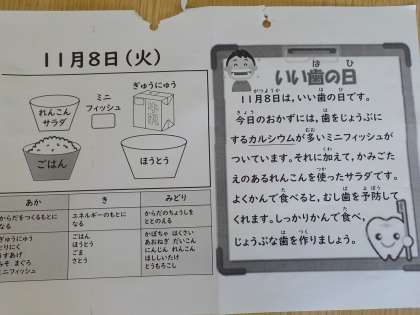 11月8日(火)
ぎゅうにゅう
牛乳
ミニ
フィッシュ
れんこん
サラダ
ごはん
ほうとう
あか
き
みどり
からだをつくるもとに
なる
エネルギーのもとに
なる
からだのちょうしを
ととのえる
ぎゅうにゅう
とりにく
みそ まぐろ
ミニフィッシュ
ごはん
ほうとう
ごま
さとう
かぼちゃ はくさい
あおねぎ だいこん
にんじん れんこん
ほししいたけ
とうもろこし
いい歯の日
11月8日は,いい歯の日です。
今日のおかずには,歯をじょうぶに
するカルシウムが多いミニフィッシュが
ついています。それに加えて,かみごた
えのあるれんこんを使ったサラダです。
よくかんで食べると,むし歯を予防して
くれます。しっかりかんで食べ,
じょうぶな歯を作りましょう。